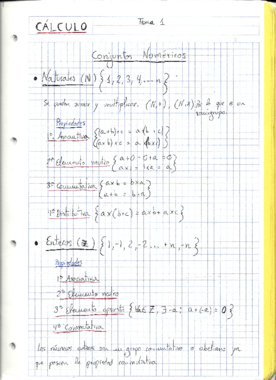 Tema 1
CÁLCULO
Conjuntos Numéricos
• Naturales (N) {1, 2, 3, 4, ... n}
Se pueden sumar y multiplicar. (N,+), (N,x) lo que es un
semigrupo.
Propiedades
1ª Asociativa {(a+b)+c = a+(b+c)
{(axb)xc = ax(bxc)
2ª Elemento neutro {a+0 = 0+a = a
{ax1 = 1xa = a
3ª Conmutativa {axb = bxa
{a+b = b+a
4ª Distributiva {ax(b+c) = axb + axc
• Enteros (Z) {1, -1, 2, -2 ... +n, -n}
Propiedades
1ª Asociativa
2ª Elemento neutro
3ª Elemento opuesto {∀a∈Z, ∃-a: a+(-a) = 0}
4ª Conmutativa
Los números enteros son un grupo conmutativo o abeliano ya
que poseen la propiedad conmutativa.